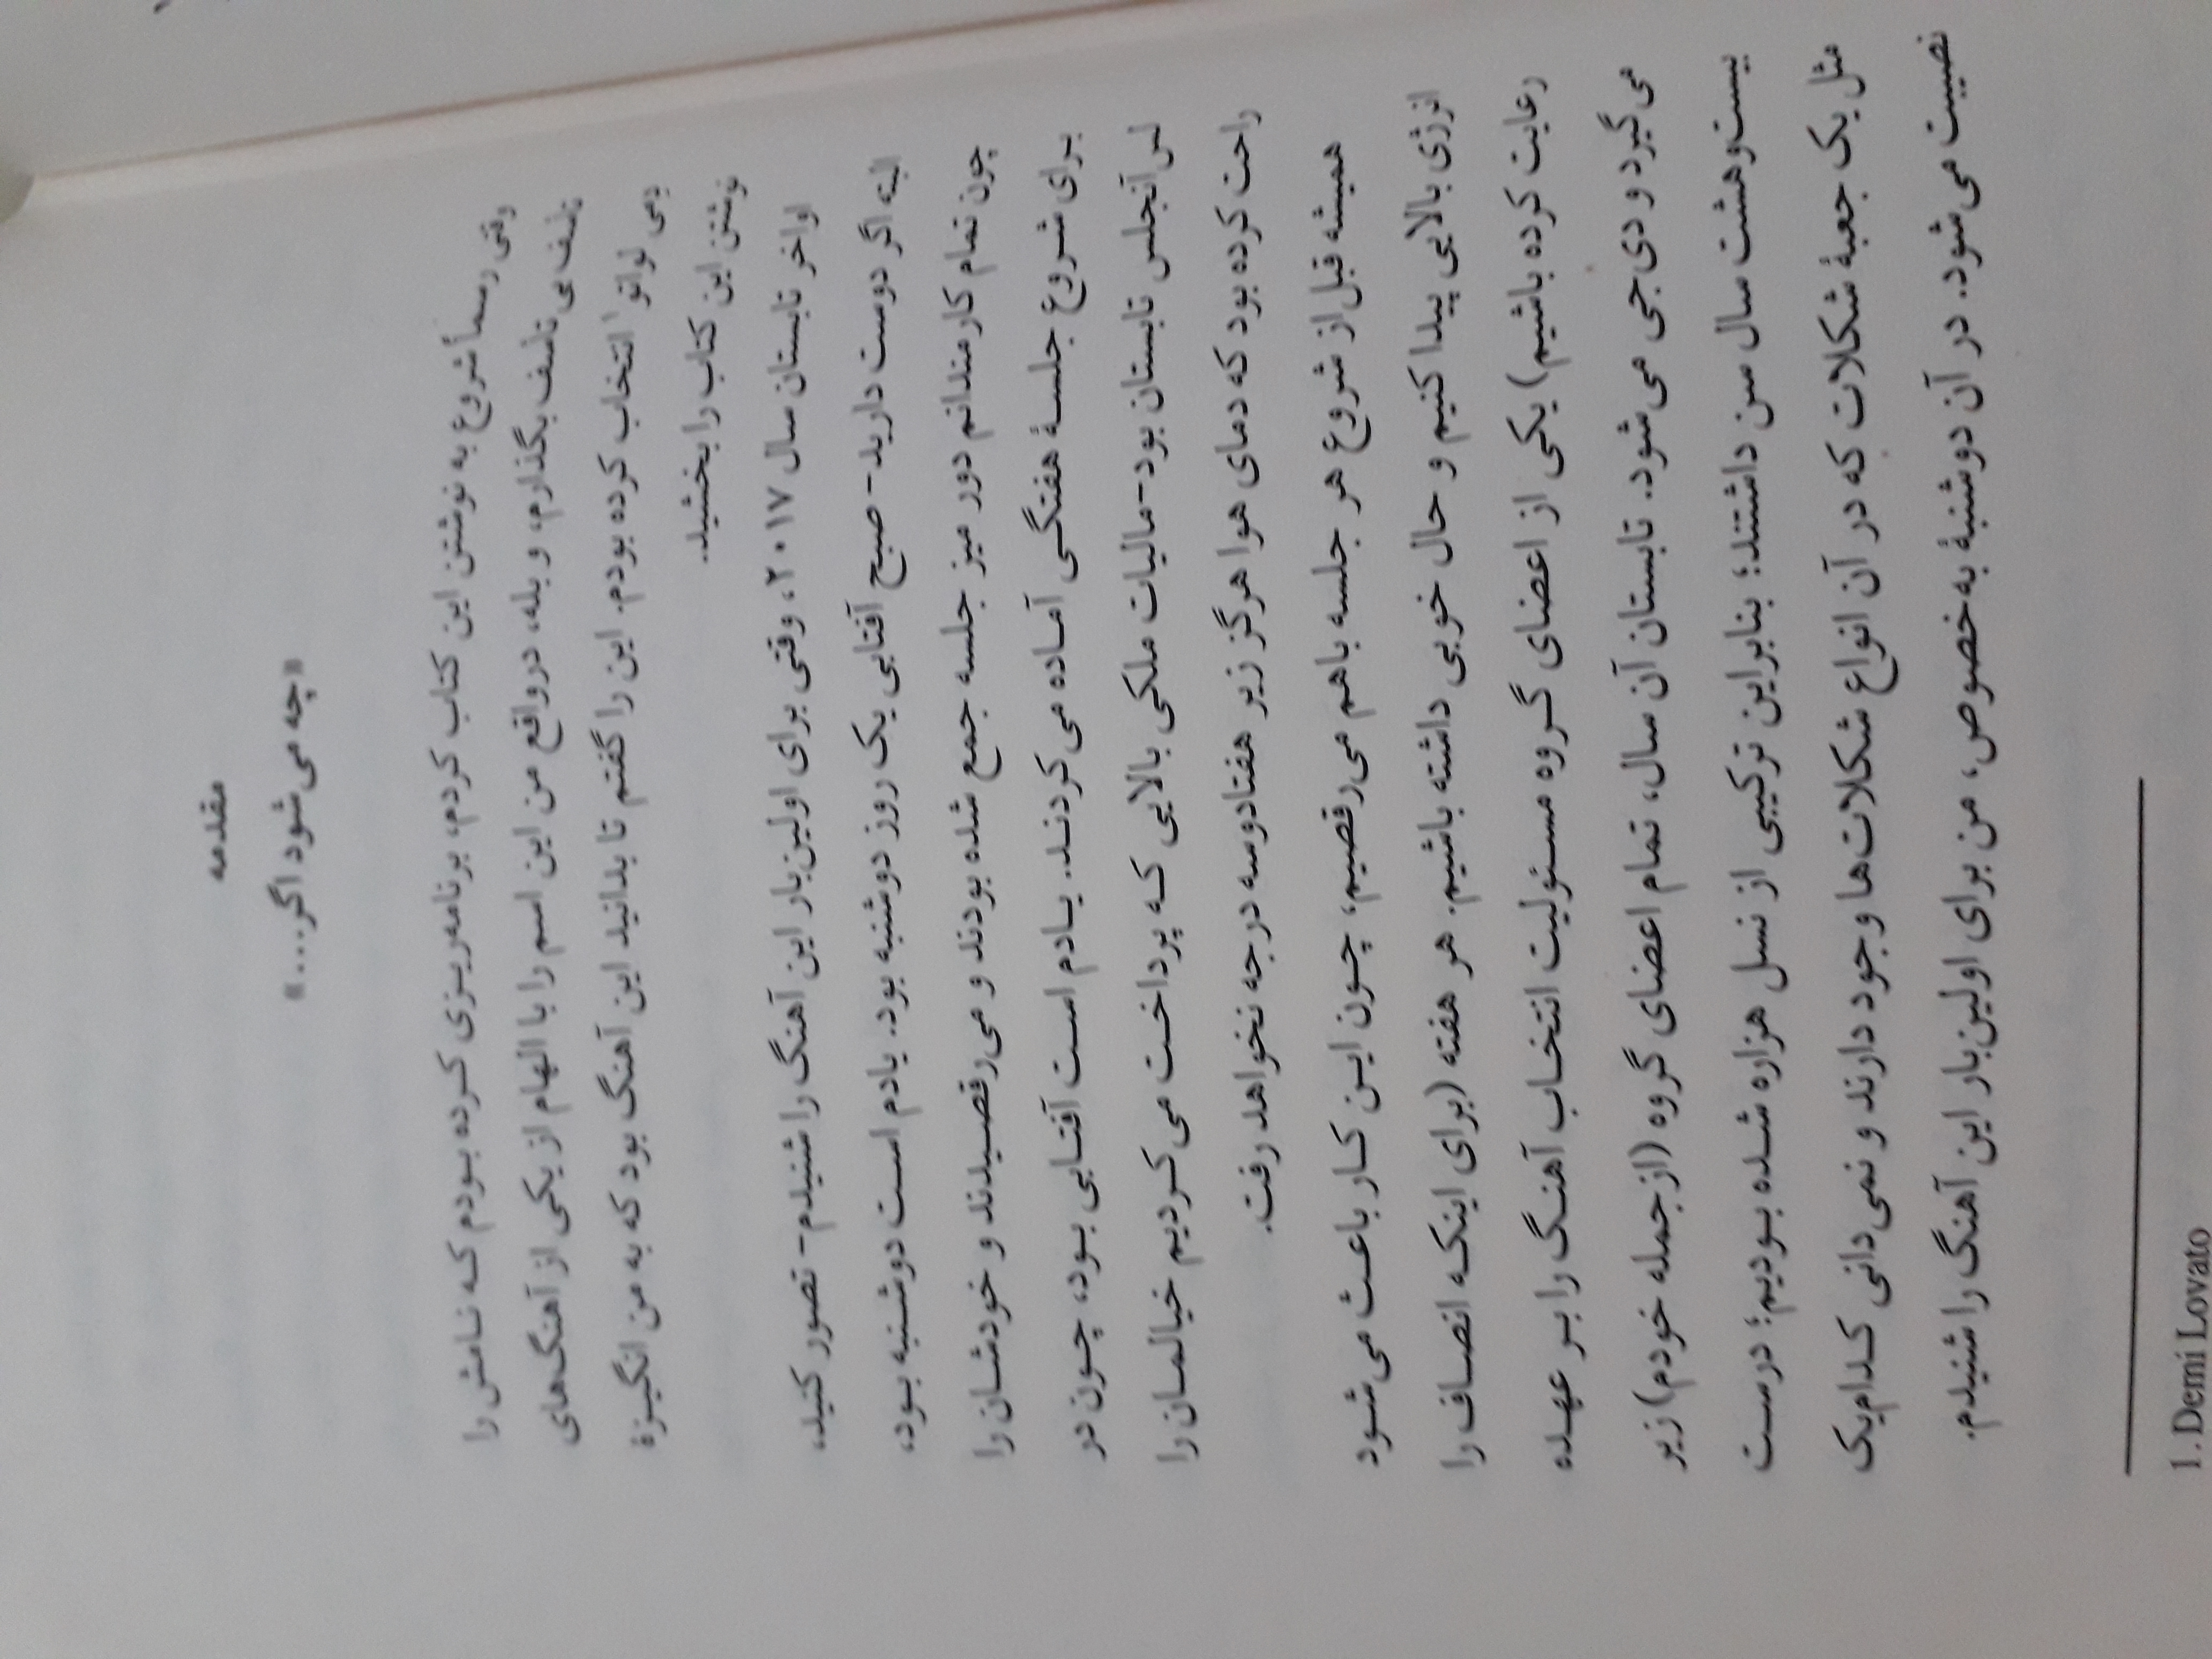 مقدمه
«چه می‌شود اگر...»
وقتی رسماً شروع به نوشتن این کتاب کردم، برنامه‌ریزی کرده بودم که نامش را
تأسف بی تأسف بگذارم، و بله، درواقع من این اسم را با الهام از یکی از آهنگ‌های
دمی لواتو۱ انتخاب کرده بودم. این را گفتم تا بدانید این آهنگ بود که به من انگیزهٔ
نوشتن این کتاب را بخشید.
اواخر تابستان سال ۲۰۱۷، وقتی برای اولین‌بار این آهنگ را شنیدم- تصور کنید،
البته اگر دوست دارید- صبح آفتابی یک روز دوشنبه بود. یادم است دوشنبه بود،
چون تمام کارمندانم دور میز جلسه جمع شده بودند و می‌رقصیدند و خودشان را
برای شروع جلسهٔ هفتگی آماده می‌کردند. یادم است آفتابی بود، چون در
لس‌آنجلس تابستان بود-مالیات ملکی بالایی که پرداخت می‌کردیم خیالمان را
راحت کرده بود که دمای هوا هرگز زیر هفتادوسه درجه نخواهد رفت.
همیشه قبل از شروع هر جلسه باهم می‌رقصیم، چون این کار باعث می‌شود
انرژی بالایی پیدا کنیم و حال خوبی داشته باشیم. هر هفته (برای اینکه انصاف را
رعایت کرده باشیم) یکی از اعضای گروه مسئولیت انتخاب آهنگ را بر عهده
می‌گیرد و دی‌جی می‌شود. تابستان آن سال، تمام اعضای گروه (ازجمله خودم) زیر
بیست‌وهشت سال سن داشتند؛ بنابراین ترکیبی از نسل هزاره شده بودیم؛ درست
مثل یک جعبهٔ شکلات که در آن انواع شکلات‌ها وجود دارند و نمی‌دانی کدام‌یک
نصیبت می‌شود. در آن دوشنبهٔ به‌خصوص، من برای اولین‌بار این آهنگ را شنیدم.
1. Demi Lovato